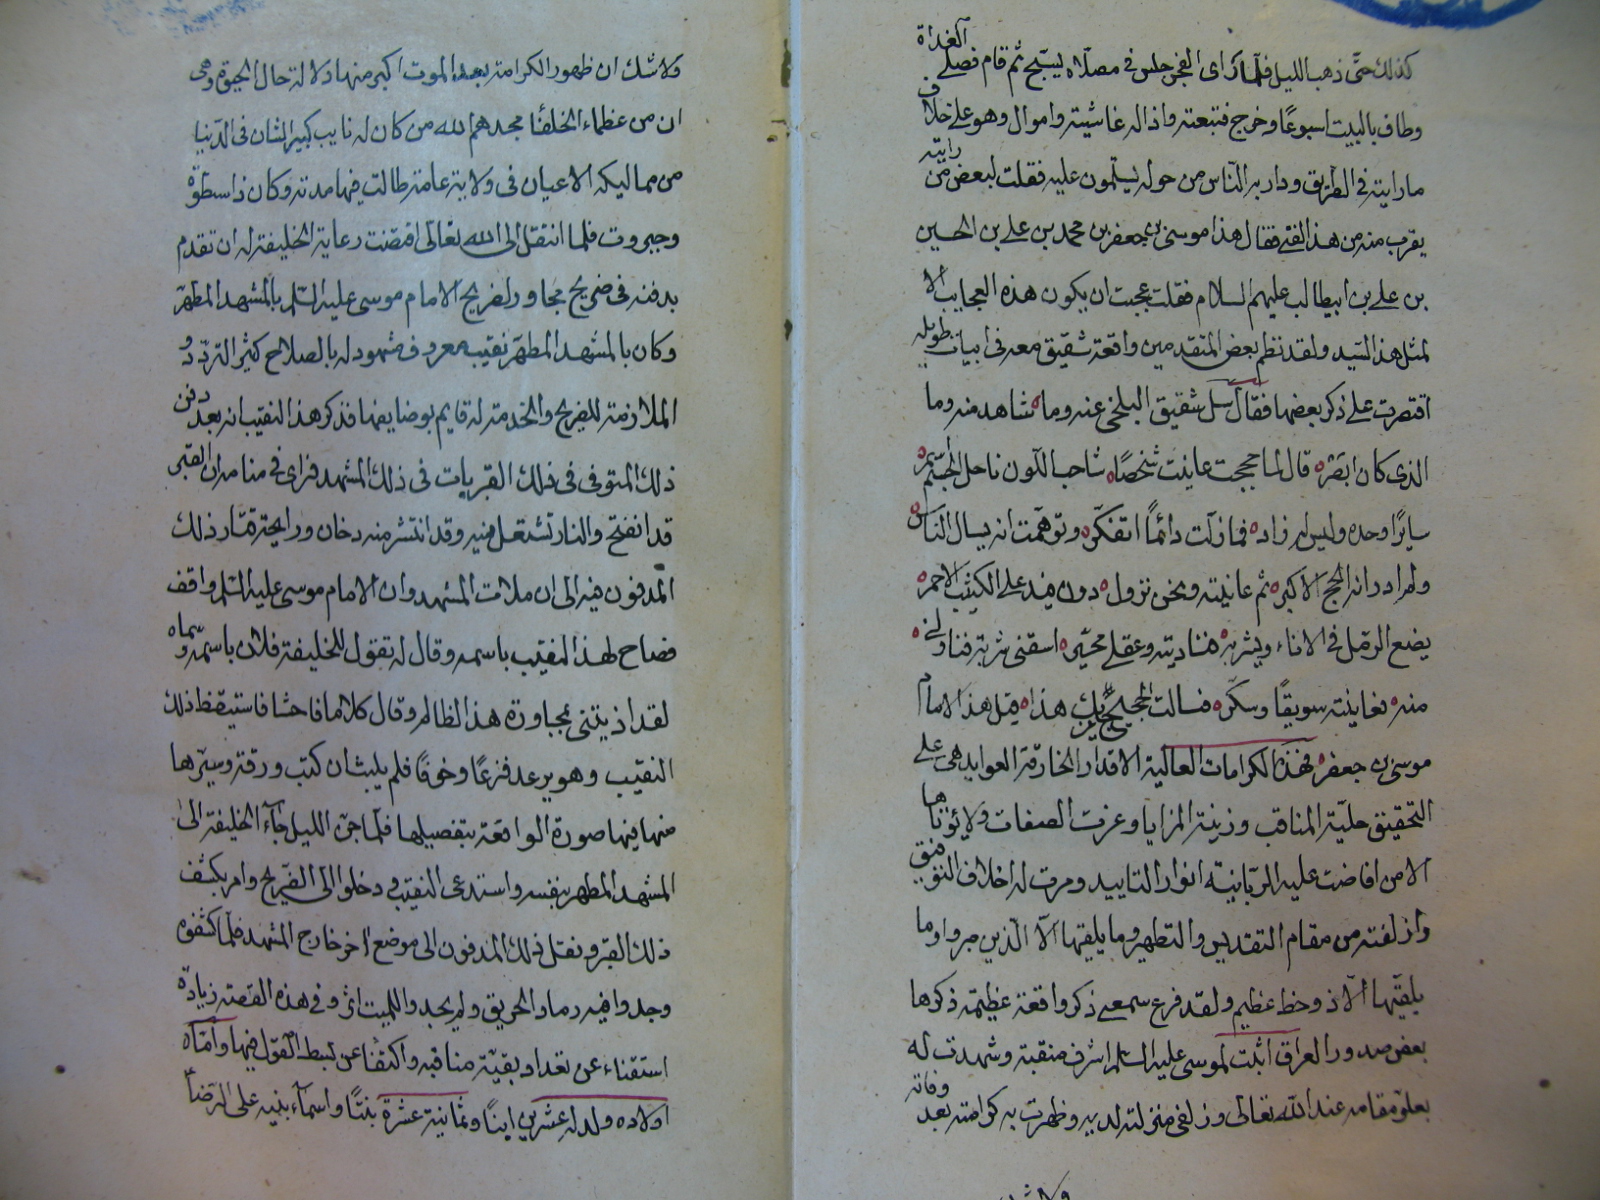 كذلك حتى ذهب الليل فلما راى الفجر جلس فى مصلاه يسبح ثم قام فصلى الغداة
وطاف بالبيت اسبوعا وخرج فتبعته واذا له غاشية واموال وهو على خلاف
ما رايته فى الطريق ودار به الناس من حوله يسلمون عليه فقلت لبعض من رايته
يقرب منه من هذا الفتى فقال هذا موسى بن جعفر بن محمد بن على بن الحسين
بن على بن ابيطالب عليهم السلام فقلت عجبت ان يكون هذه العجايب الا
لمثل هذا السيد ولقد نظم بعض المتقدمين واقعة شقيق معه فى ابيات طويله
اقتصرت على ذكر بعضها فقال سل شقيق البلخى عنه وما شاهد منه وما
الذى كان ابصره قال لما حججت عاينت شخصا شاحب اللون ناحل الجسم
سايرا وحده وليس له زاد فما زلت دائما اتفكر وتوهمت انه يسال الناس
ولم ادر انه الحج الاكبر ثم عاينته ونحن نزول دون فيد على الكثيب الاحمر
يضع الرمل فى الاناء ويشربه فناديته وعقلى محير اسقنى شربة فناولنى
منه فعاينته سويقا وسكر فسالت الحجيج من يك هذا قيل هذا الامام
موسى بن جعفر فهذه الكرامات العالية الاقدار الخارقة العوايد هى على
التحقيق حلية المناقب وزينة المزايا وغرر الصفات ولا يؤتاها
الا من افاضت عليه الربانية انوار التاييد ومرت له اخلاف التوفيق
وازلفته من مقام التقديس والتطهير وما يلقيها الا الذين صبروا وما
يلقيها الا ذو حظ عظيم ولقد قرع سمعى ذكر واقعة عظيمة ذكرها
بعض صدور العراق اثبت لموسى عليه السلم اشرف منقبة وشهدت له
بعلو مقامه عند الله تعالى وزلفى منزلته لديه وظهرت به كرامته بعد وفاته
ولا شك
ولا شك ان ظهور الكرامة بعد الموت اكبر منها دلالة حال الحيوة وهى
ان من عظماء الخلفا مجدهم الله من كان له نايب كبير الشان فى الدنيا
من مماليكه الاعيان فى ولاية عامة طالت فيها مدته وكان ذا سطوة
وجبروت فلما انتقل الى الله تعالى اقتضت رعاية الخليفة له ان تقدم
بدفنه فى ضريح مجاور لضريح الامام موسى عليه السلم بالمشهد المطهر
وكان بالمشهد المطهر نقيب معروف مشهود له بالصلاح كثير التردد و
الملازمة للضريح والخدمة له قايم بوضايفها فذكر هذا النقيب انه بعد دفن
ذلك المتوفى فى ذلك القبر بات فى ذلك المشهد فراى فى منامه ان القبر
قد انفتح والنار تشتعل فيه وقد انتشر منه دخان ورايحة قتار ذلك
المدفون فيه الى ان ملات المشهد وان الامام موسى عليه السلم واقف
فصاح لهذا النقيب باسمه وقال له تقول للخليفة فلان باسمه وسماه
لقد اذيتنى بمجاورة هذا الظالم وقال كلاما فاحشا فاستيقظ ذلك
النقيب وهو يرعد فزعا وخوفا فلم يلبث ان كتب ورقة وسيرها
منهيا فيها صورة الواقعة بتفصيلها فلما جن الليل جاء الخليفة الى
المشهد المطهر بنفسه واستدعى النقيب ودخلوا الى الضريح وامر بكشف
ذلك القبر ونقل ذلك المدفون الى موضع اخر خارج المشهد فلما كشفوه
وجدوا فيه رماد الحريق ولم يجدوا للميت اثر وفى هذه القصة زيادة
استغناء عن تعداد بقية مناقبه واكتفا عن بسط القول فيها واما
اولاده ولد له عشرين ابنا وثمانية عشرة بنتا واسماء بنيه على الرضا